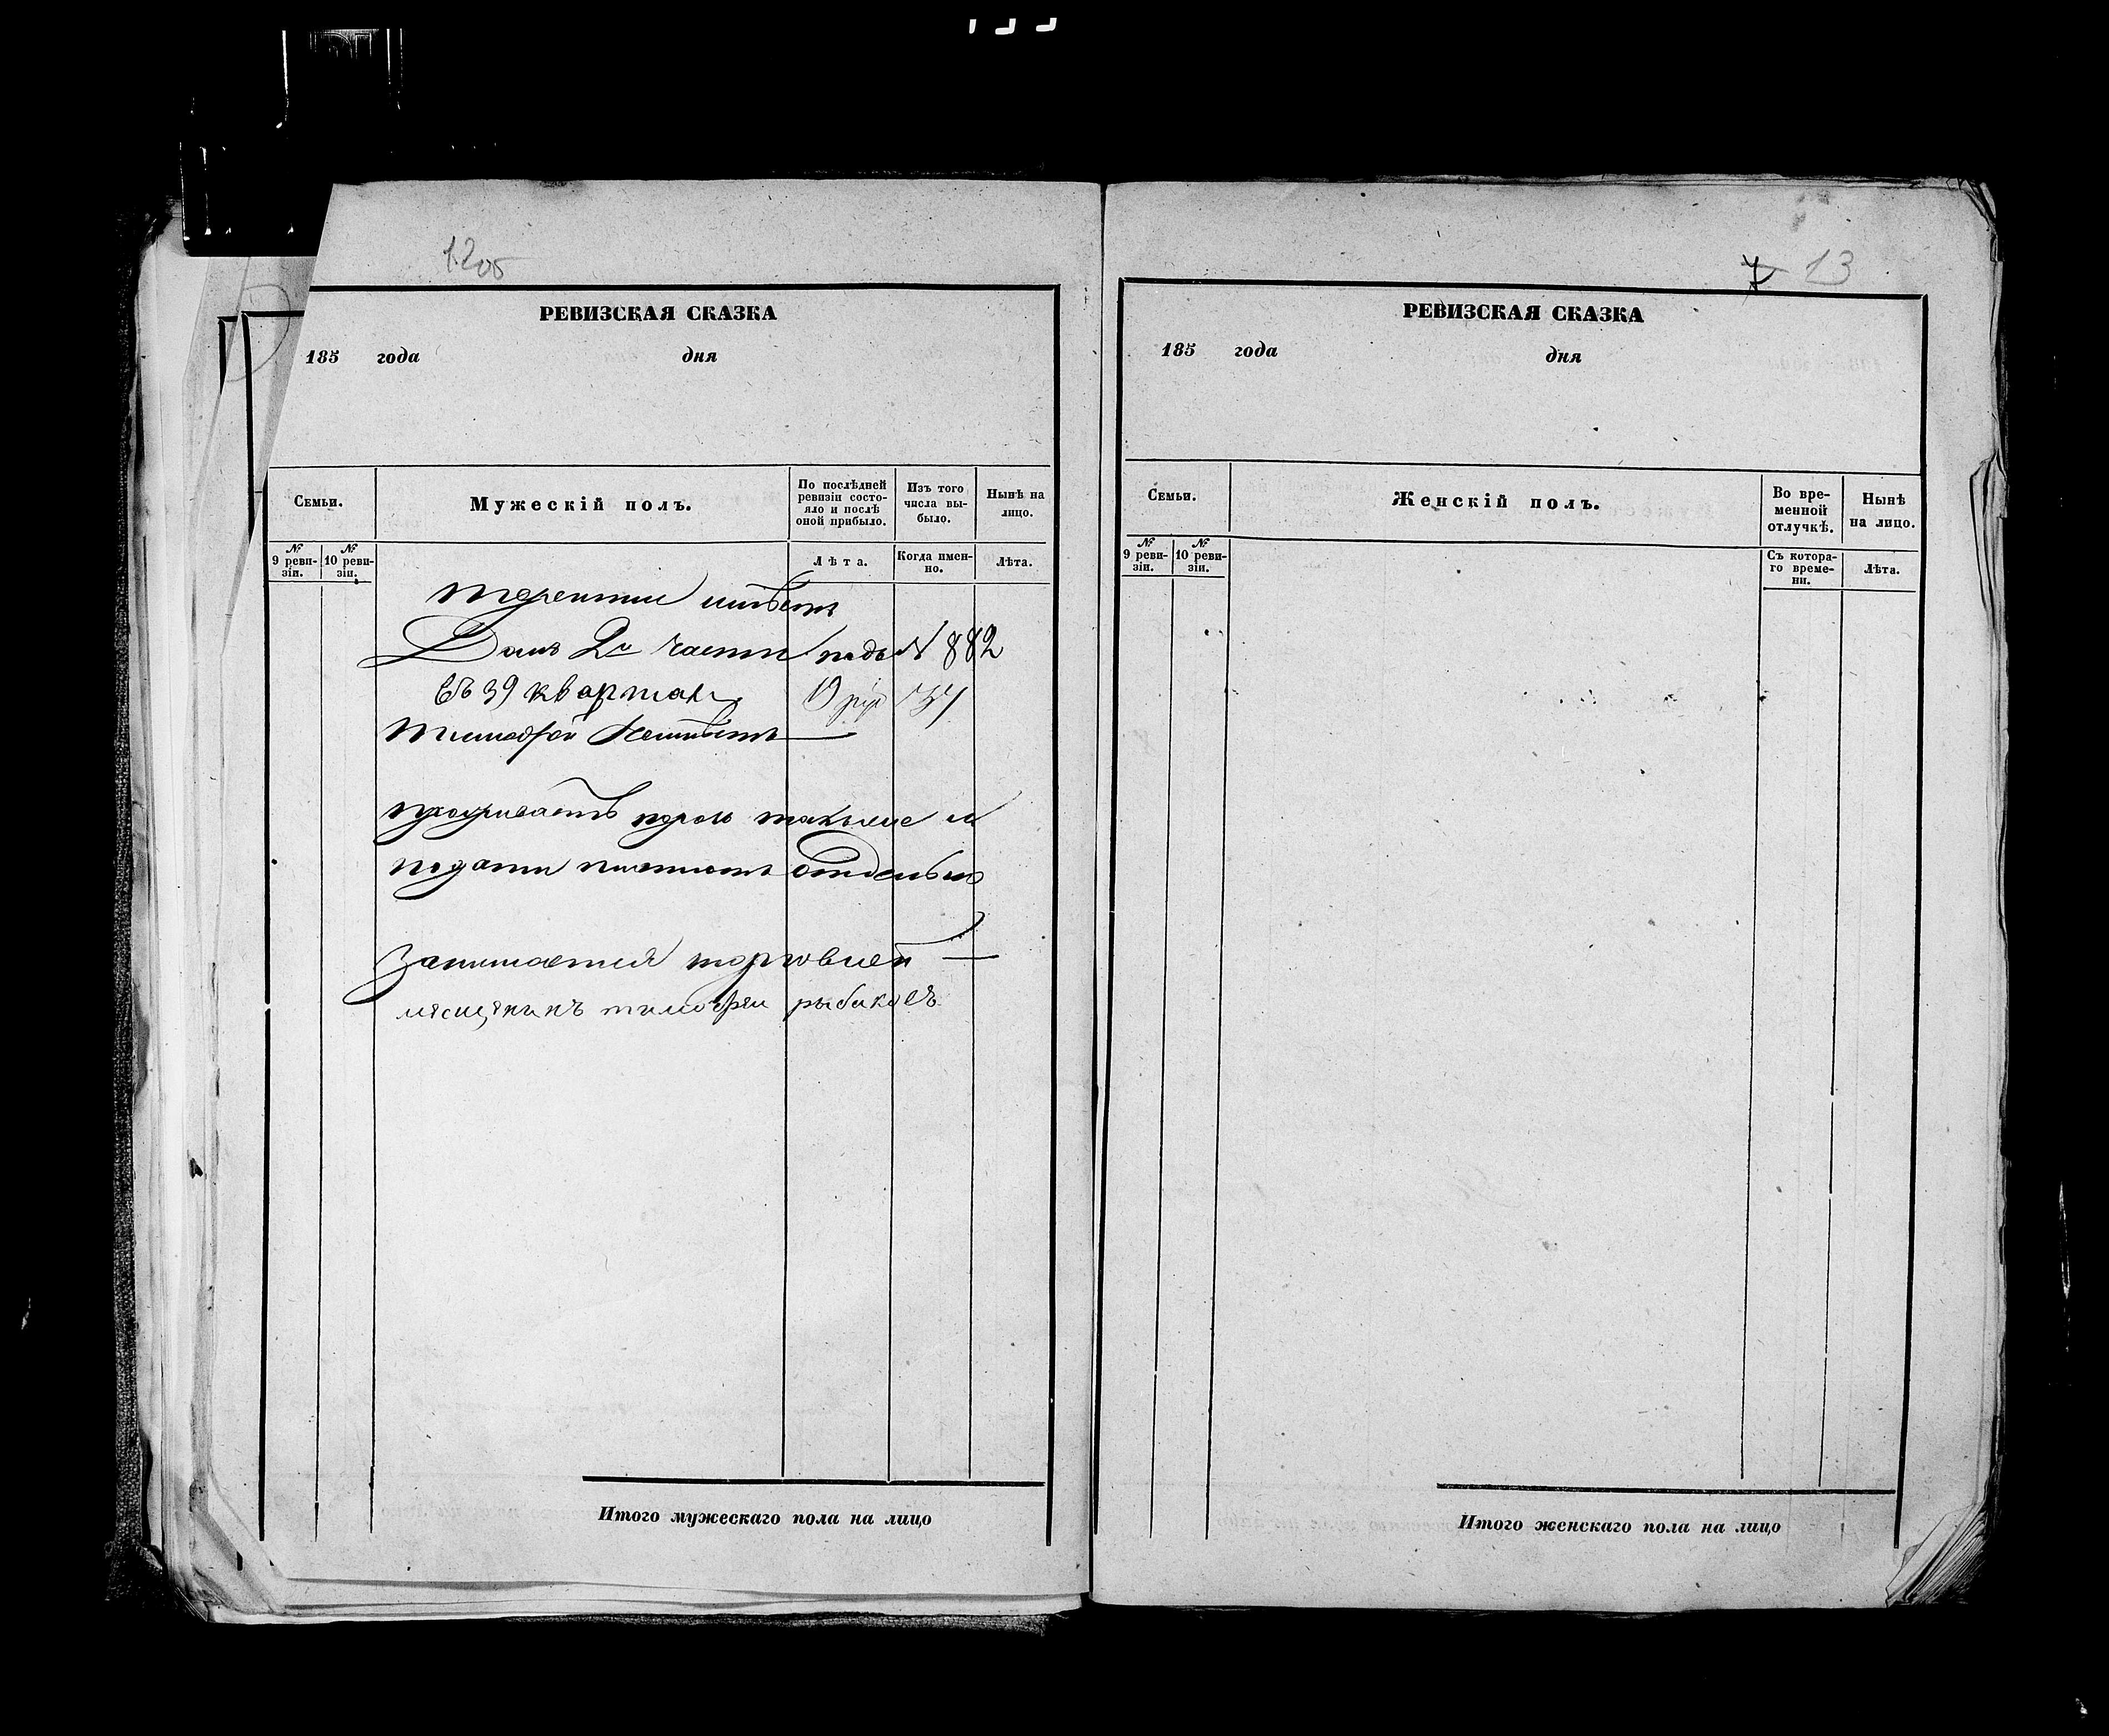 12об
РЕВИЗСКАЯ СКАЗКА
185 года дня
Семьи.
Мужескій полъ.
По послѣдней ревизіи состояло и послѣ оной прибыло.
Изъ того числа выбыло.
Нынѣ на лицо.
№ 9 ревизіи.
№ 10 ревизіи.
Лѣта.
Когда именно.
Лѣта.
Терентий имѣетъ
Домъ 2й части подъ № 882
въ 39 квартал
Тимофей неимѣетъ
порознь также и
подати отдельно
Занимается торговлей
мещянинъ тимофеи рыбаковъ
Итого мужескаго пола на лицо
7 13
РЕВИЗСКАЯ СКАЗКА
185 года дня
Семьи.
Женскій полъ.
Во временной отлучкѣ.
Нынѣ на лицо.
№ 9 ревизіи.
№ 10 ревизіи.
Съ котораго времени.
Лѣта.
Итого женскаго пола на лицо